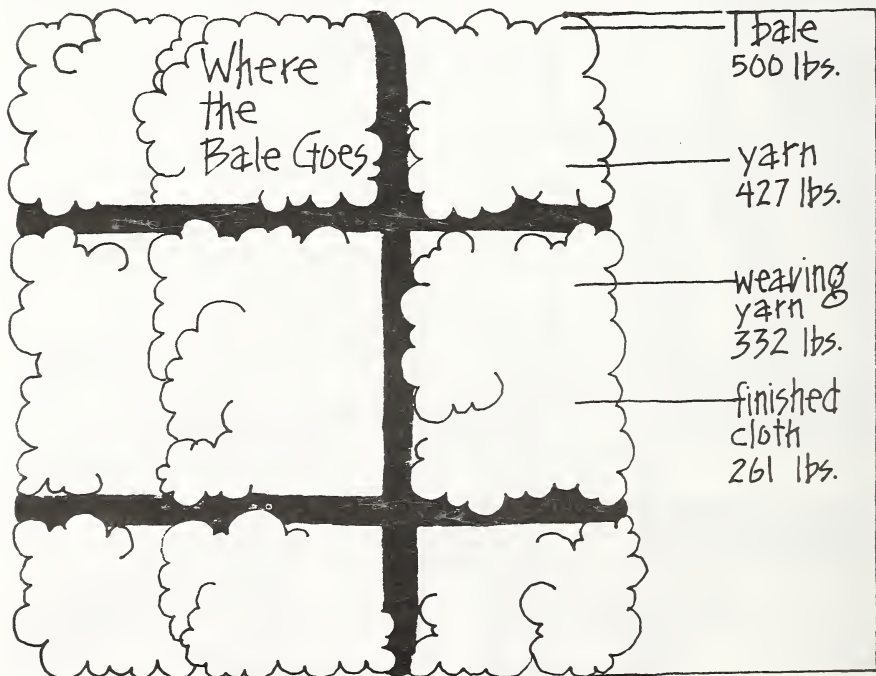 Where
the
Bale Goes
1 bale
500 lbs.
yarn
427 lbs.
weaving
yarn
332 lbs.
finished
cloth
261 lbs.